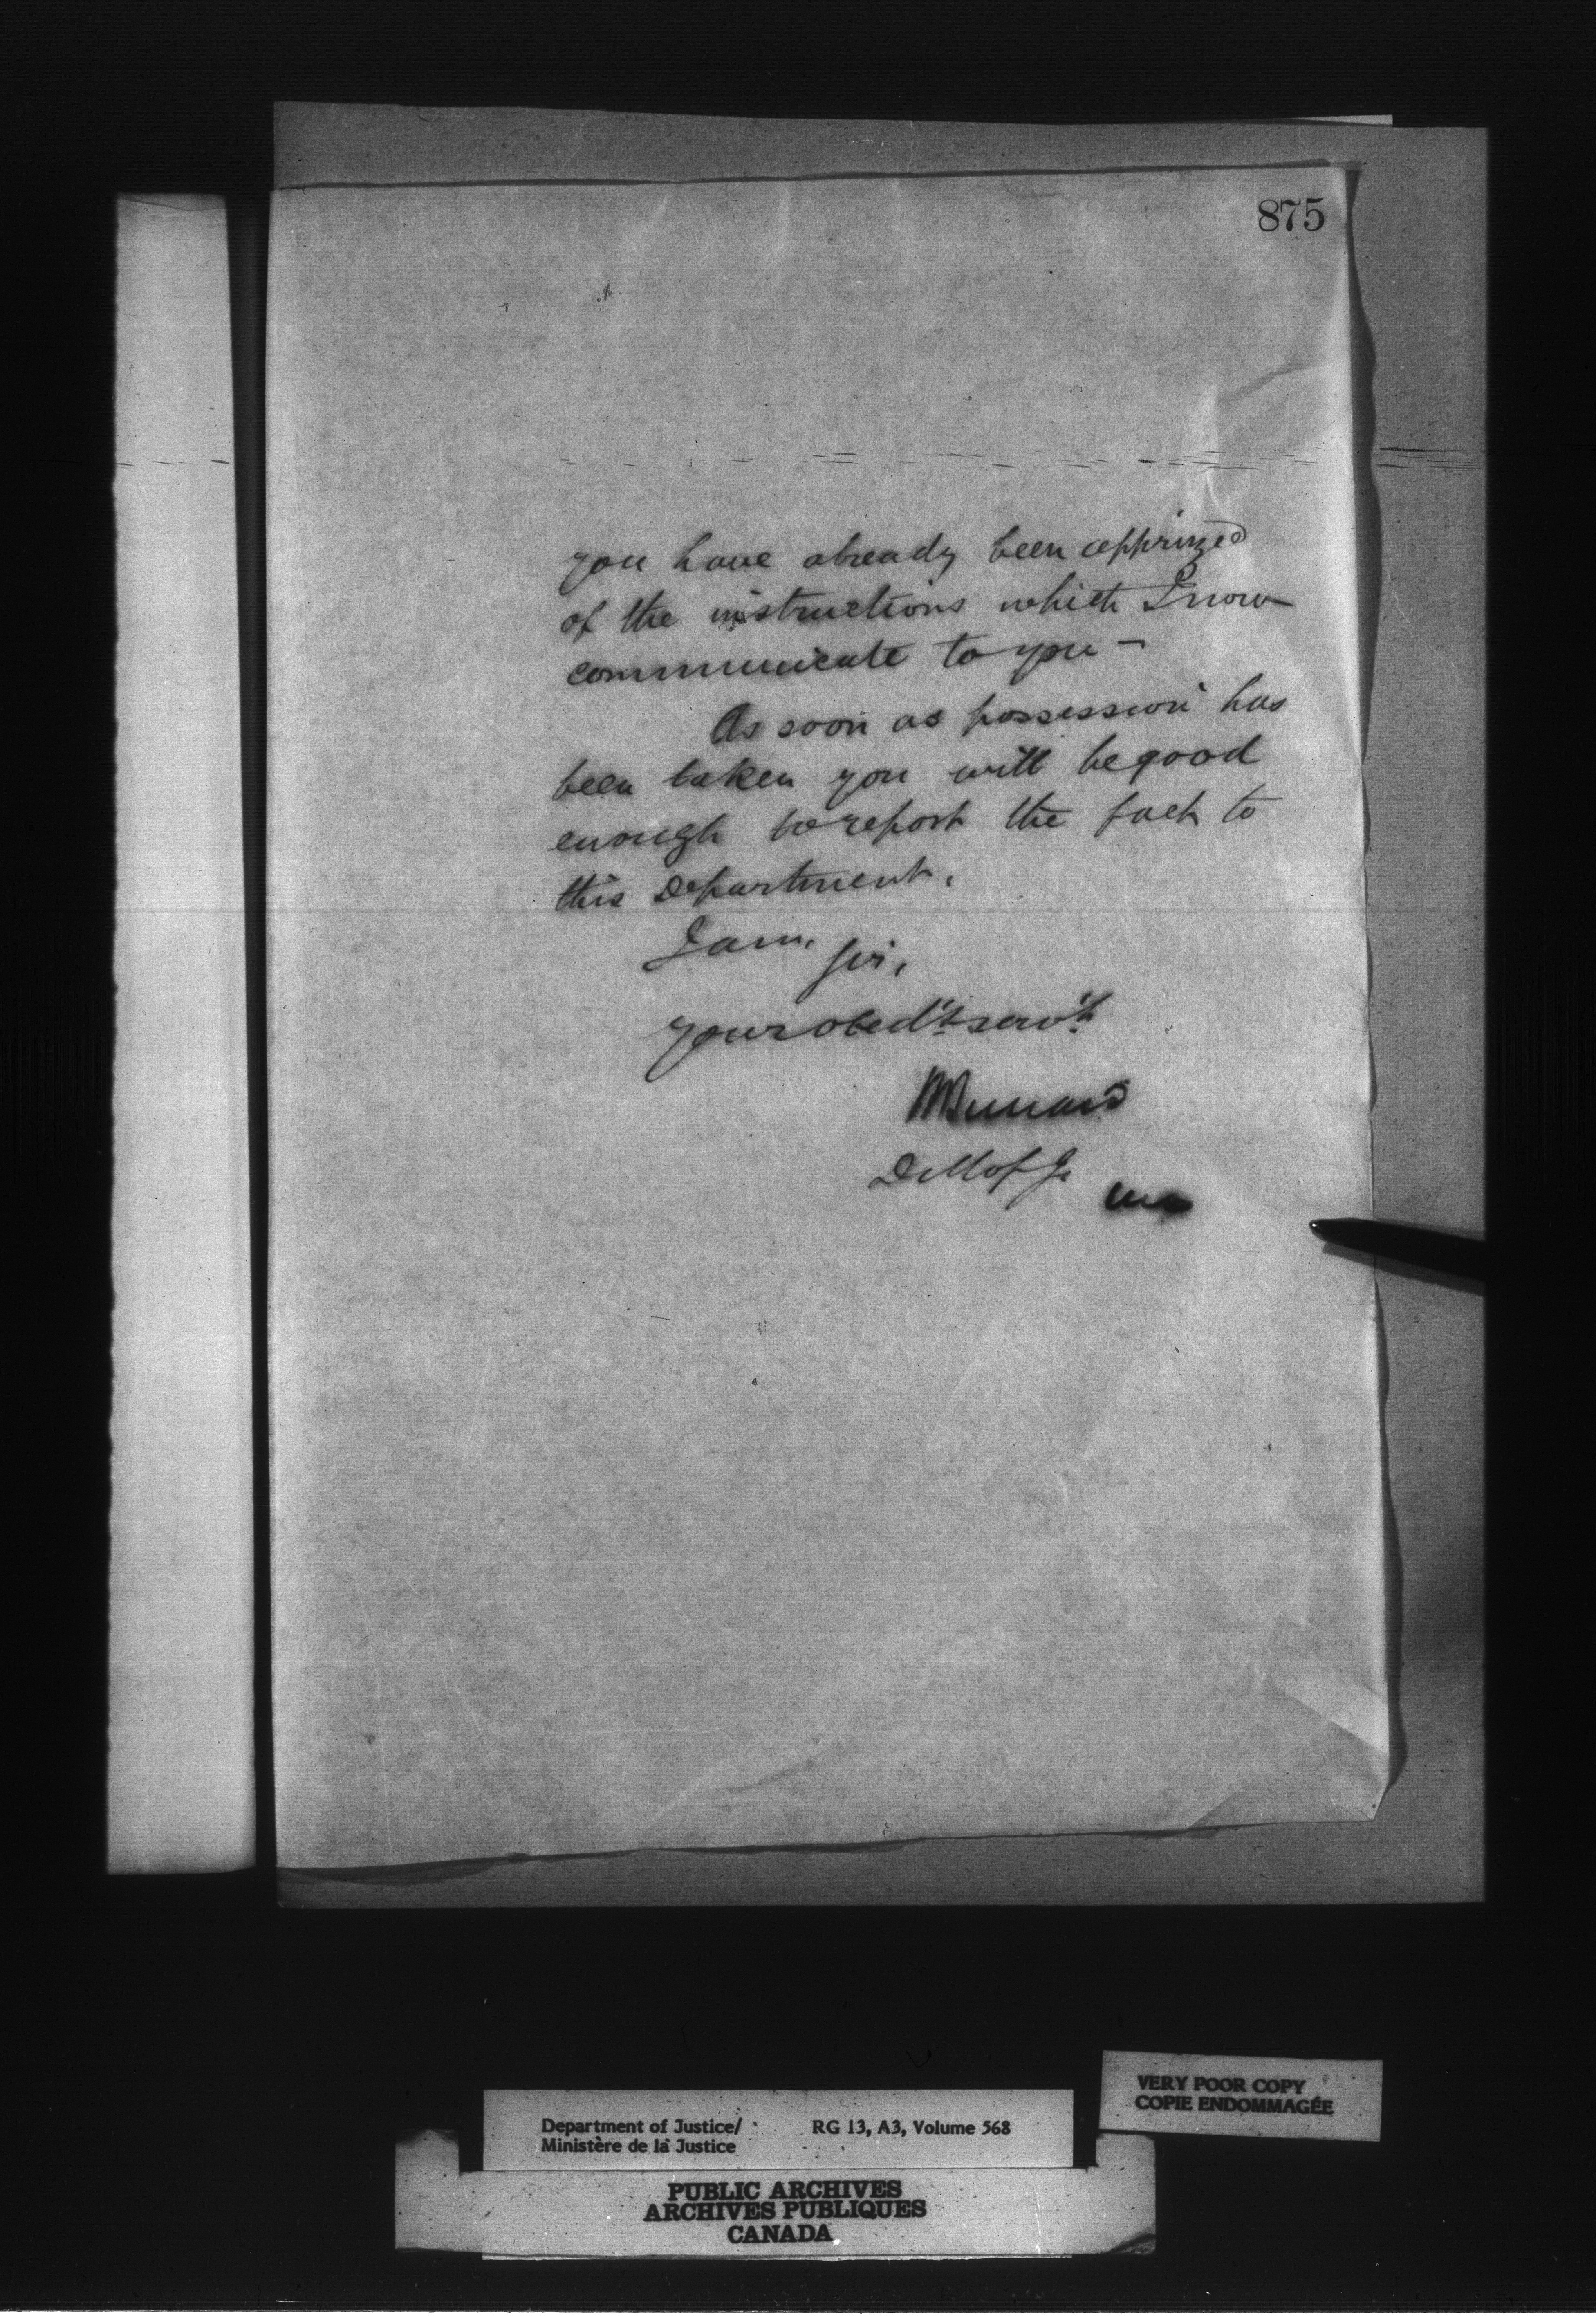 875
you have already been apprized
of the instructions which I now
communicate to you —
As soon as possession has
been taken you will be good
enough to report the fact to
this Department.
I am,
Sir,
your obed't serv't
HBernard
D M of J.
VERY POOR COPY
COPIE ENDOMMAGÉE
Department of Justice/ RG 13, A3, Volume 568
Ministère de la Justice
PUBLIC ARCHIVES
ARCHIVES PUBLIQUES
CANADA